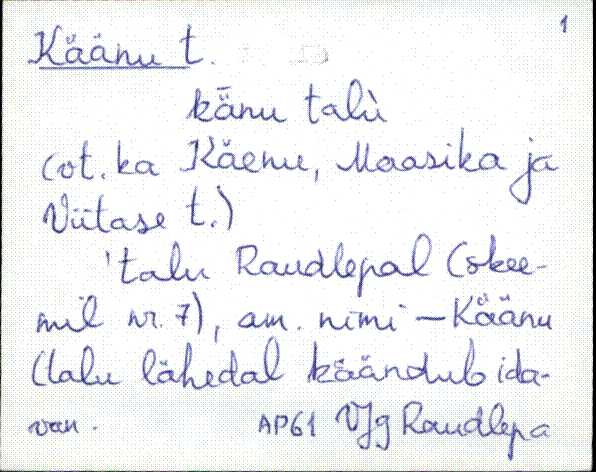 1
Käänu t.
kǟnu talù
(ot. ka Käenu, Maasika ja
Viitase t.)
'talu Raudlepal (skee-
mil nr. 7), am. nimi – Käänu
(talu lähedal käändub ida-
van. AP61 VJg Raudlepa